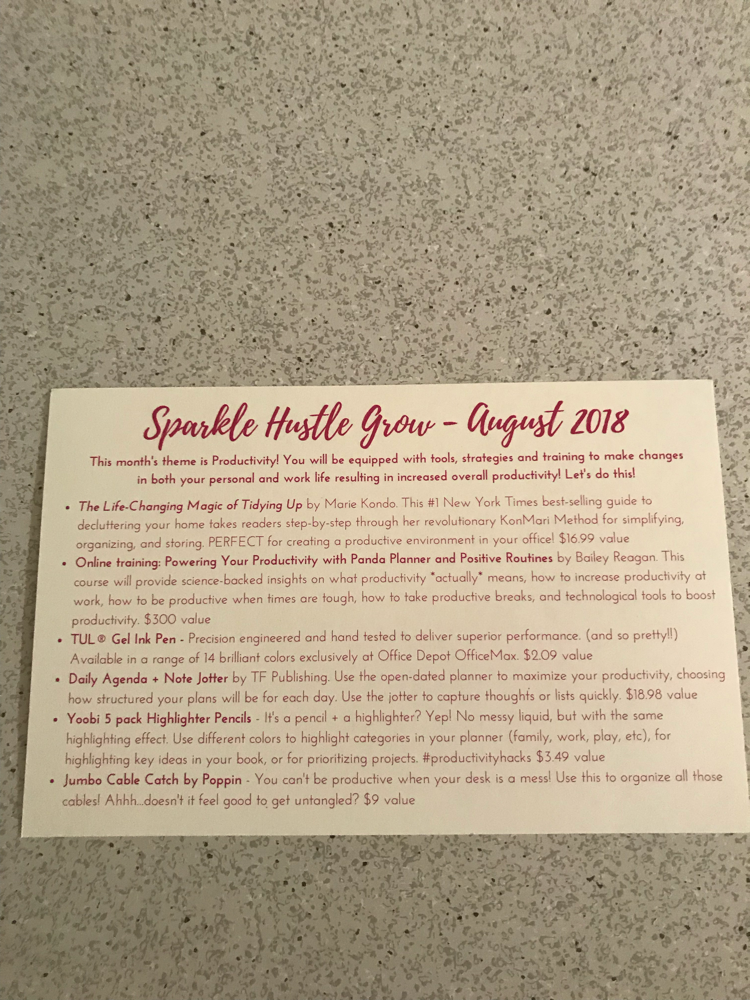 Sparkle Hustle Grow – August 2018
This month's theme is Productivity! You will be equipped with tools, strategies and training to make changes
in both your personal and work life resulting in increased overall productivity! Let's do this!
• The Life-Changing Magic of Tidying Up by Marie Kondo. This #1 New York Times best-selling guide to
decluttering your home takes readers step-by-step through her revolutionary KonMari Method for simplifying,
organizing, and storing. PERFECT for creating a productive environment in your office! $16.99 value
• Online training: Powering Your Productivity with Panda Planner and Positive Routines by Bailey Reagan. This
course will provide science-backed insights on what productivity *actually* means, how to increase productivity at
work, how to be productive when times are tough, how to take productive breaks, and technological tools to boost
productivity. $300 value
• TUL® Gel Ink Pen - Precision engineered and hand tested to deliver superior performance. (and so pretty!!)
Available in a range of 14 brilliant colors exclusively at Office Depot OfficeMax. $2.09 value
• Daily Agenda + Note Jotter by TF Publishing. Use the open-dated planner to maximize your productivity, choosing
how structured your plans will be for each day. Use the jotter to capture thoughts or lists quickly. $18.98 value
• Yoobi 5 pack Highlighter Pencils - It's a pencil + a highlighter? Yep! No messy liquid, but with the same
highlighting effect. Use different colors to highlight categories in your planner (family, work, play, etc), for
highlighting key ideas in your book, or for prioritizing projects. #productivityhacks $3.49 value
• Jumbo Cable Catch by Poppin - You can't be productive when your desk is a mess! Use this to organize all those
cables! Ahhh...doesn't it feel good to get untangled? $9 value